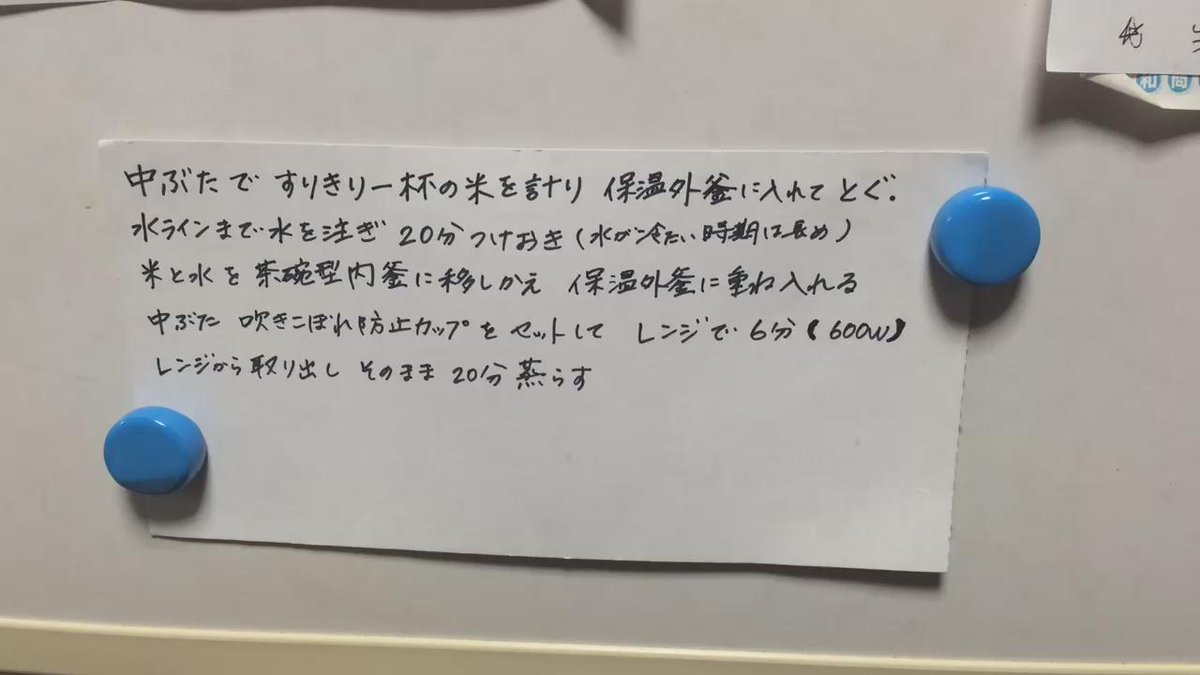 中ぶたで すりきり一杯の米を計り 保温外釜に入れて とぐ.
水ラインまで水を注ぎ 20分つけおき(水が冷たい時期は長め)
米と水を茶碗型内釜に移しかえ 保温外釜に重ね入れる
中ぶた 吹きこぼれ防止カップをセットして レンジで 6分(600W)
レンジから取り出し そのまま 20分 蒸らす
和 商